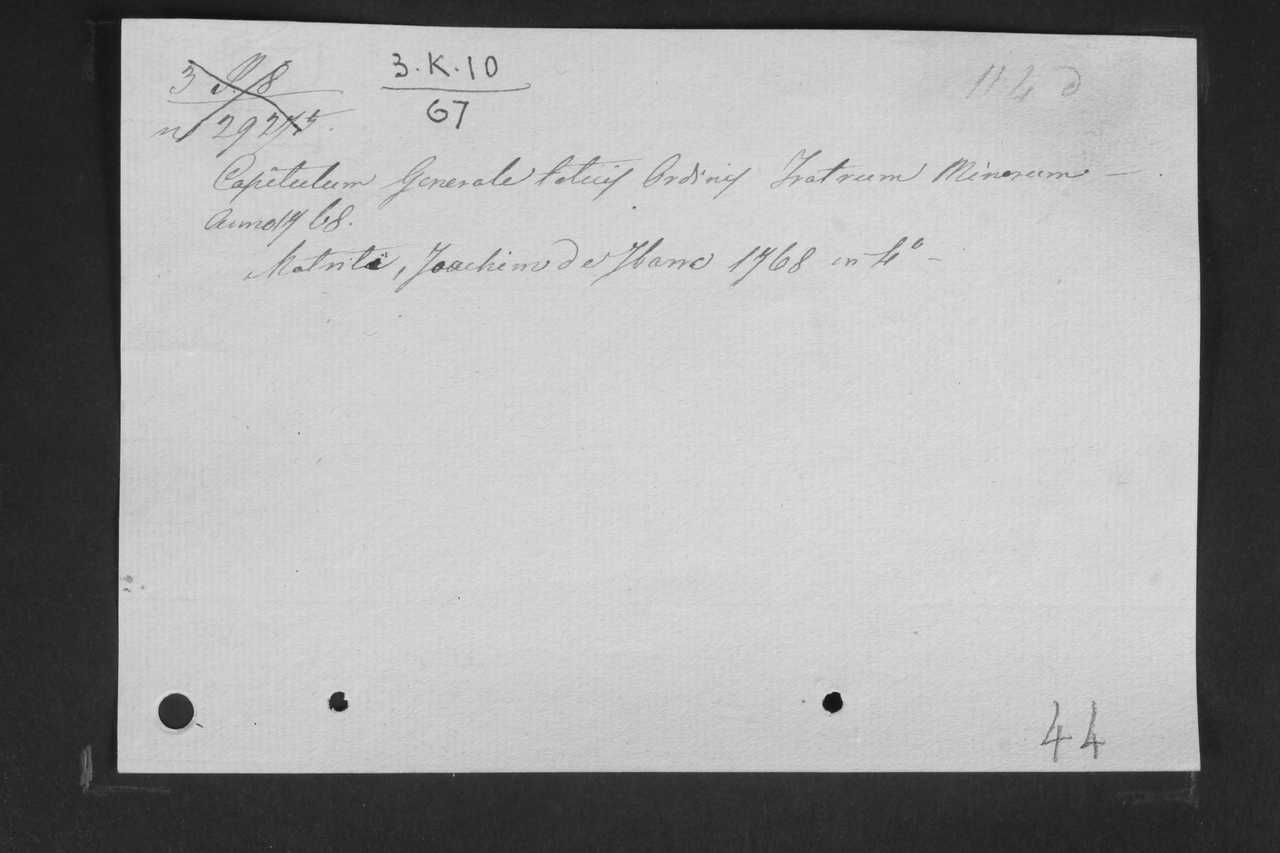 3 8
3.K.10
67
Capitulum Generale totius Ordinis Fratrum Minorum —
Anno 1768.
Matriti, Joachim de Ibarra 1768 in 4º —
44